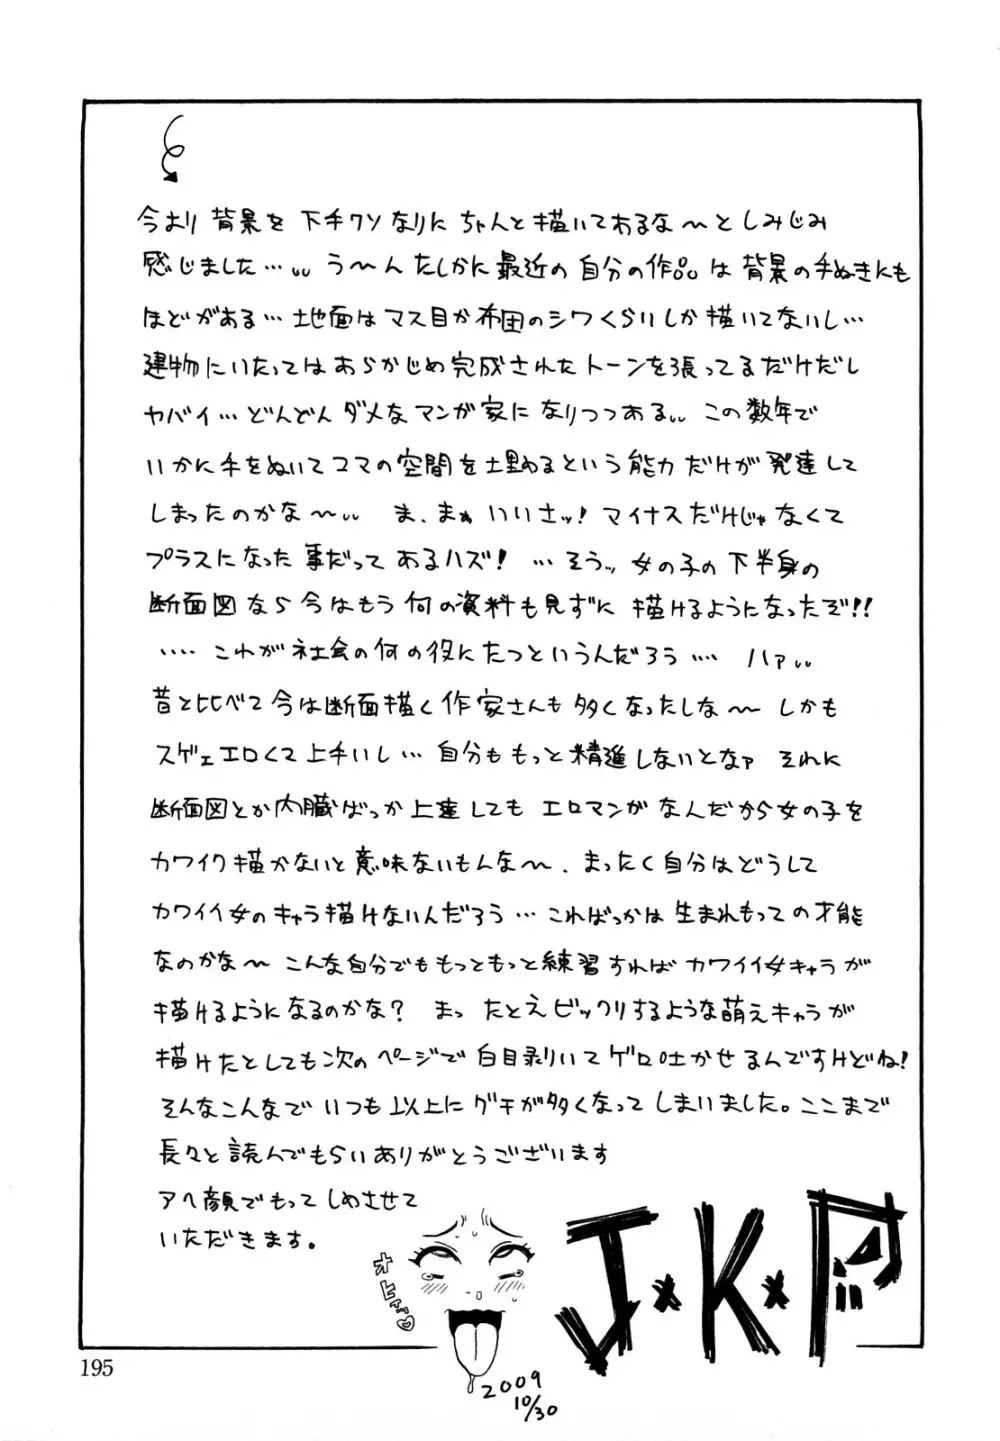 今より背景を下手クソなりにちゃんと描いてあるな〜としみじみ
感じました…。。う〜んたしかに最近の自分の作品は背景の手ぬきにも
ほどがある…地面はマス目か布団のシワくらいしか描いてないし…
建物にいたってはあらかじめ完成されたトーンを張ってるだけだし
ヤバイ…どんどんダメなマンガ家になりつつある。。この数年で
いかに手をぬいてコマの空間を埋めるという能力だけが発達して
しまったのかな〜。。ま、まぁいいさッ!マイナスだけじゃなくて
プラスになった事だってあるハズ!…そうッ女の子の下半身の
断面図なら今はもう何の資料も見ずに描けるようになったぞ!!
‥‥これが社会の何の役にたつというんだろう‥‥ハァ。。
昔と比べて今は断面描く作家さんも多くなったしな〜しかも
スゲェエロくて上手いし…自分ももっと精進しないとなァそれに
断面図とか内臓ばっか上達してもエロマンガなんだから女の子を
カワイク描かないと意味ないもんな〜、まったく自分はどうして
カワイイ女のキャラ描けないんだろう…こればっかは生まれもっての才能
なのかな〜こんな自分でももっともっと練習すればカワイイ女キャラが
描けるようになるのかな?まったとえビックリするような萌えキャラが
描けたとしても次のページで白目剥いてゲロ吐かせるんですけどね!
そんなこんなでいつも以上にグチが多くなってしまいました。ここまで
長々と読んでもらいありがとうございます
アヘ顔でもってしめさせて
いただきます。
J★K★P
2009
10/30
195